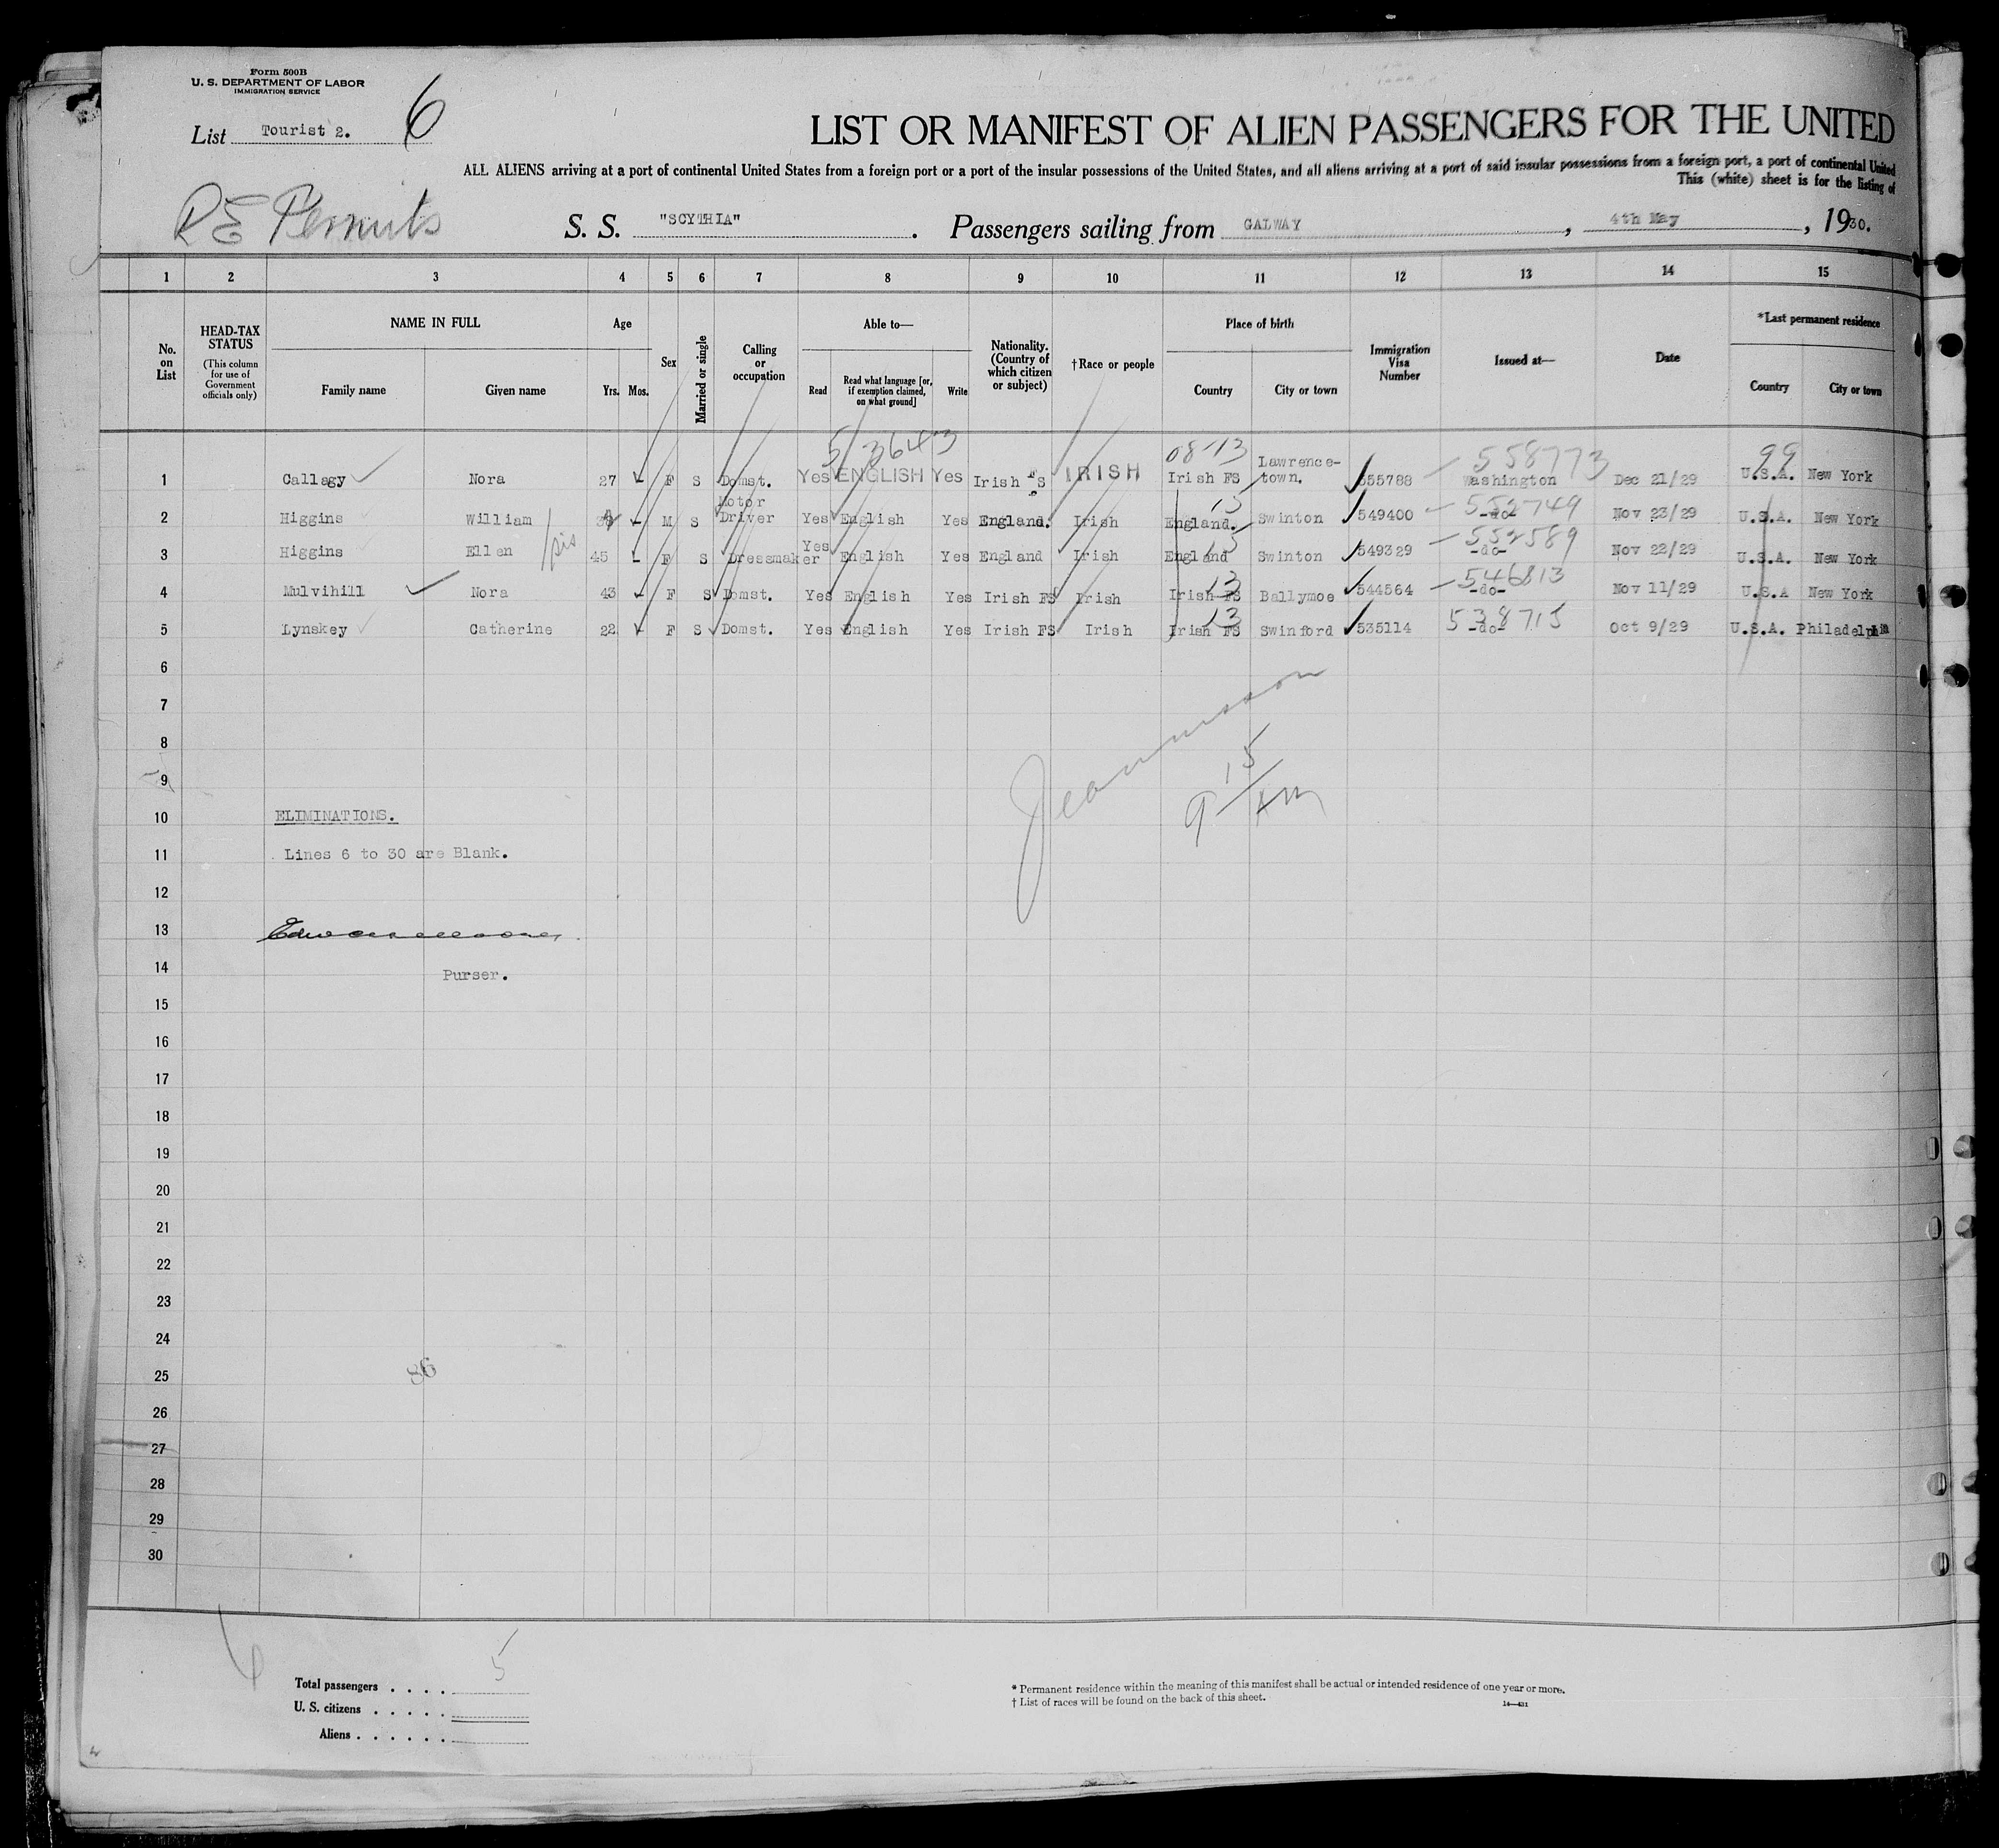 Form 500B
U. S. DEPARTMENT OF LABOR
IMMIGRATION SERVICE
List Tourist 2. 6
LIST OR MANIFEST OF ALIEN PASSENGERS FOR THE UNITED
ALL ALIENS arriving at a port of continental United States from a foreign port or a port of the insular possessions of the United States, and all aliens arriving at a port of said insular possessions from a foreign port, a port of continental United
This (white) sheet is for the listing of
RE Permits
S. S. "SCYTHIA" . Passengers sailing from GALWAY , 4th May , 1930.
1 2 3 4 5 6 7 8 9 10 11 12 13 14 15
No. on List
HEAD-TAX STATUS
(This column for use of Government officials only)
NAME IN FULL
Family name Given name
Age
Yrs. Mos.
Sex
Married or single
Calling or occupation
Able to—
Read Read what language [or, if exemption claimed, on what ground] Write
Nationality. (Country of which citizen or subject)
†Race or people
Place of birth
Country City or town
Immigration Visa Number
Issued at—
Date
*Last permanent residence
Country City or town
5/3643 08-13 558773 99
1 Callagy Nora 27 - F S Domst. Yes ENGLISH Yes Irish FS IRISH Irish FS Lawrence-town. 555788 Washington Dec 21/29 U.S.A. New York
15 552749
2 Higgins William M S Motor Driver Yes English Yes England. Irish England. Swinton 549400 -do- Nov 23/29 U.S.A. New York
15 552589
3 Higgins Ellen 45 - F S Dressmaker Yes English Yes England Irish England Swinton 549329 -do- Nov 22/29 U.S.A. New York
13 546813
4 Mulvihill Nora 43 - F S Domst. Yes English Yes Irish FS Irish Irish FS Ballymoe 544564 -do- Nov 11/29 U.S.A New York
13 538715
5 Lynskey Catherine 22 - F S Domst. Yes English Yes Irish FS Irish Irish FS Swinford 535114 -do- Oct 9/29 U.S.A. Philadelphia
6
7
8
9
10 ELIMINATIONS.
11 Lines 6 to 30 are Blank.
12
13
14 Purser.
15
16
17
18
19
20
21
22
23
24
25
86
26
27
28
29
30
6
Total passengers . . . . 5
U. S. citizens . . . . .
Aliens . . . . . .
* Permanent residence within the meaning of this manifest shall be actual or intended residence of one year or more.
† List of races will be found on the back of this sheet.
14—431